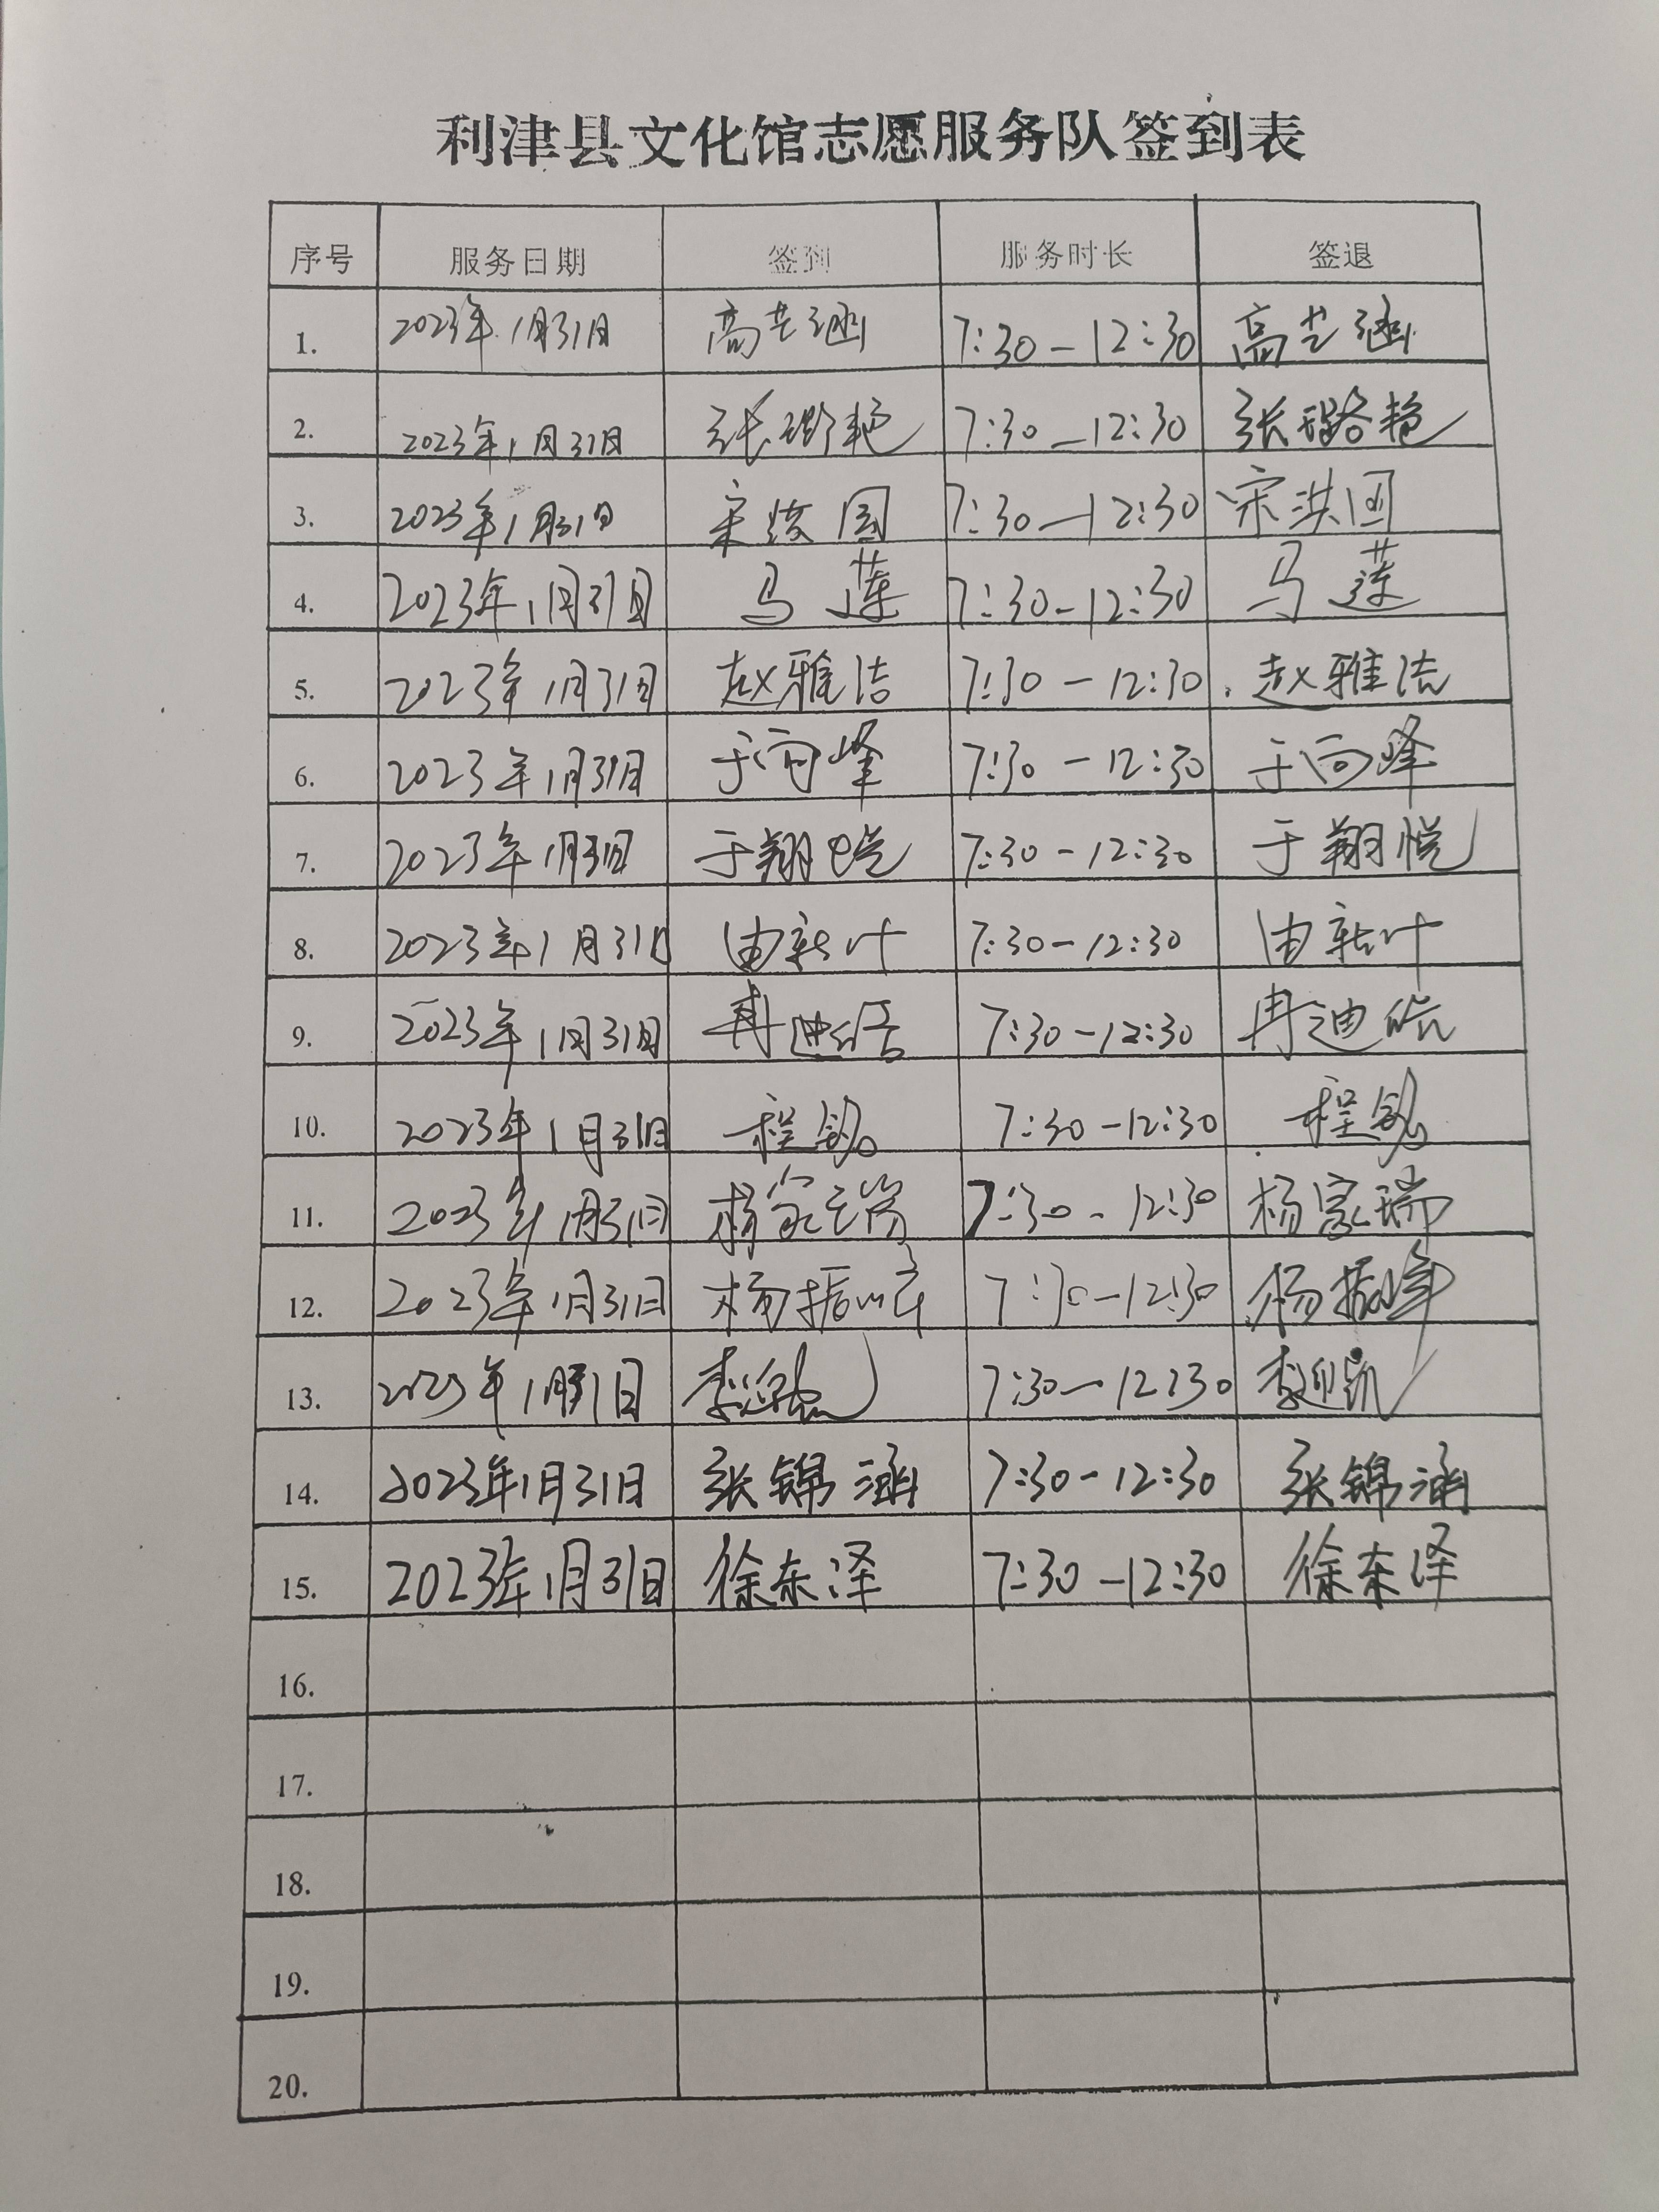 利津县文化馆志愿服务队签到表
序号 服务日期 签到 服务时长 签退
1. 2023年1月31日 高艺涵 7:30-12:30 高艺涵
2. 2023年1月31日 张璐艳 7:30-12:30 张璐艳
3. 2023年1月31日 宋洪国 7:30-12:30 宋洪国
4. 2023年1月31日 马莲 7:30-12:30 马莲
5. 2023年1月31日 赵雅洁 7:30-12:30 赵雅洁
6. 2023年1月31日 于向峰 7:30-12:30 于向峰
7. 2023年1月31日 于翔悦 7:30-12:30 于翔悦
8. 2023年1月31日 7:30-12:30
9. 2023年1月31日 7:30-12:30
10. 2023年1月31日 7:30-12:30
11. 2023年1月31日 杨家瑞 7:30-12:30 杨家瑞
12. 2023年1月31日 杨振峰 7:30-12:30 杨振峰
13. 2023年1月31日 7:30-12:30
14. 2023年1月31日 张锦涵 7:30-12:30 张锦涵
15. 2023年1月31日 徐东泽 7:30-12:30 徐东泽
16.
17.
18.
19.
20.